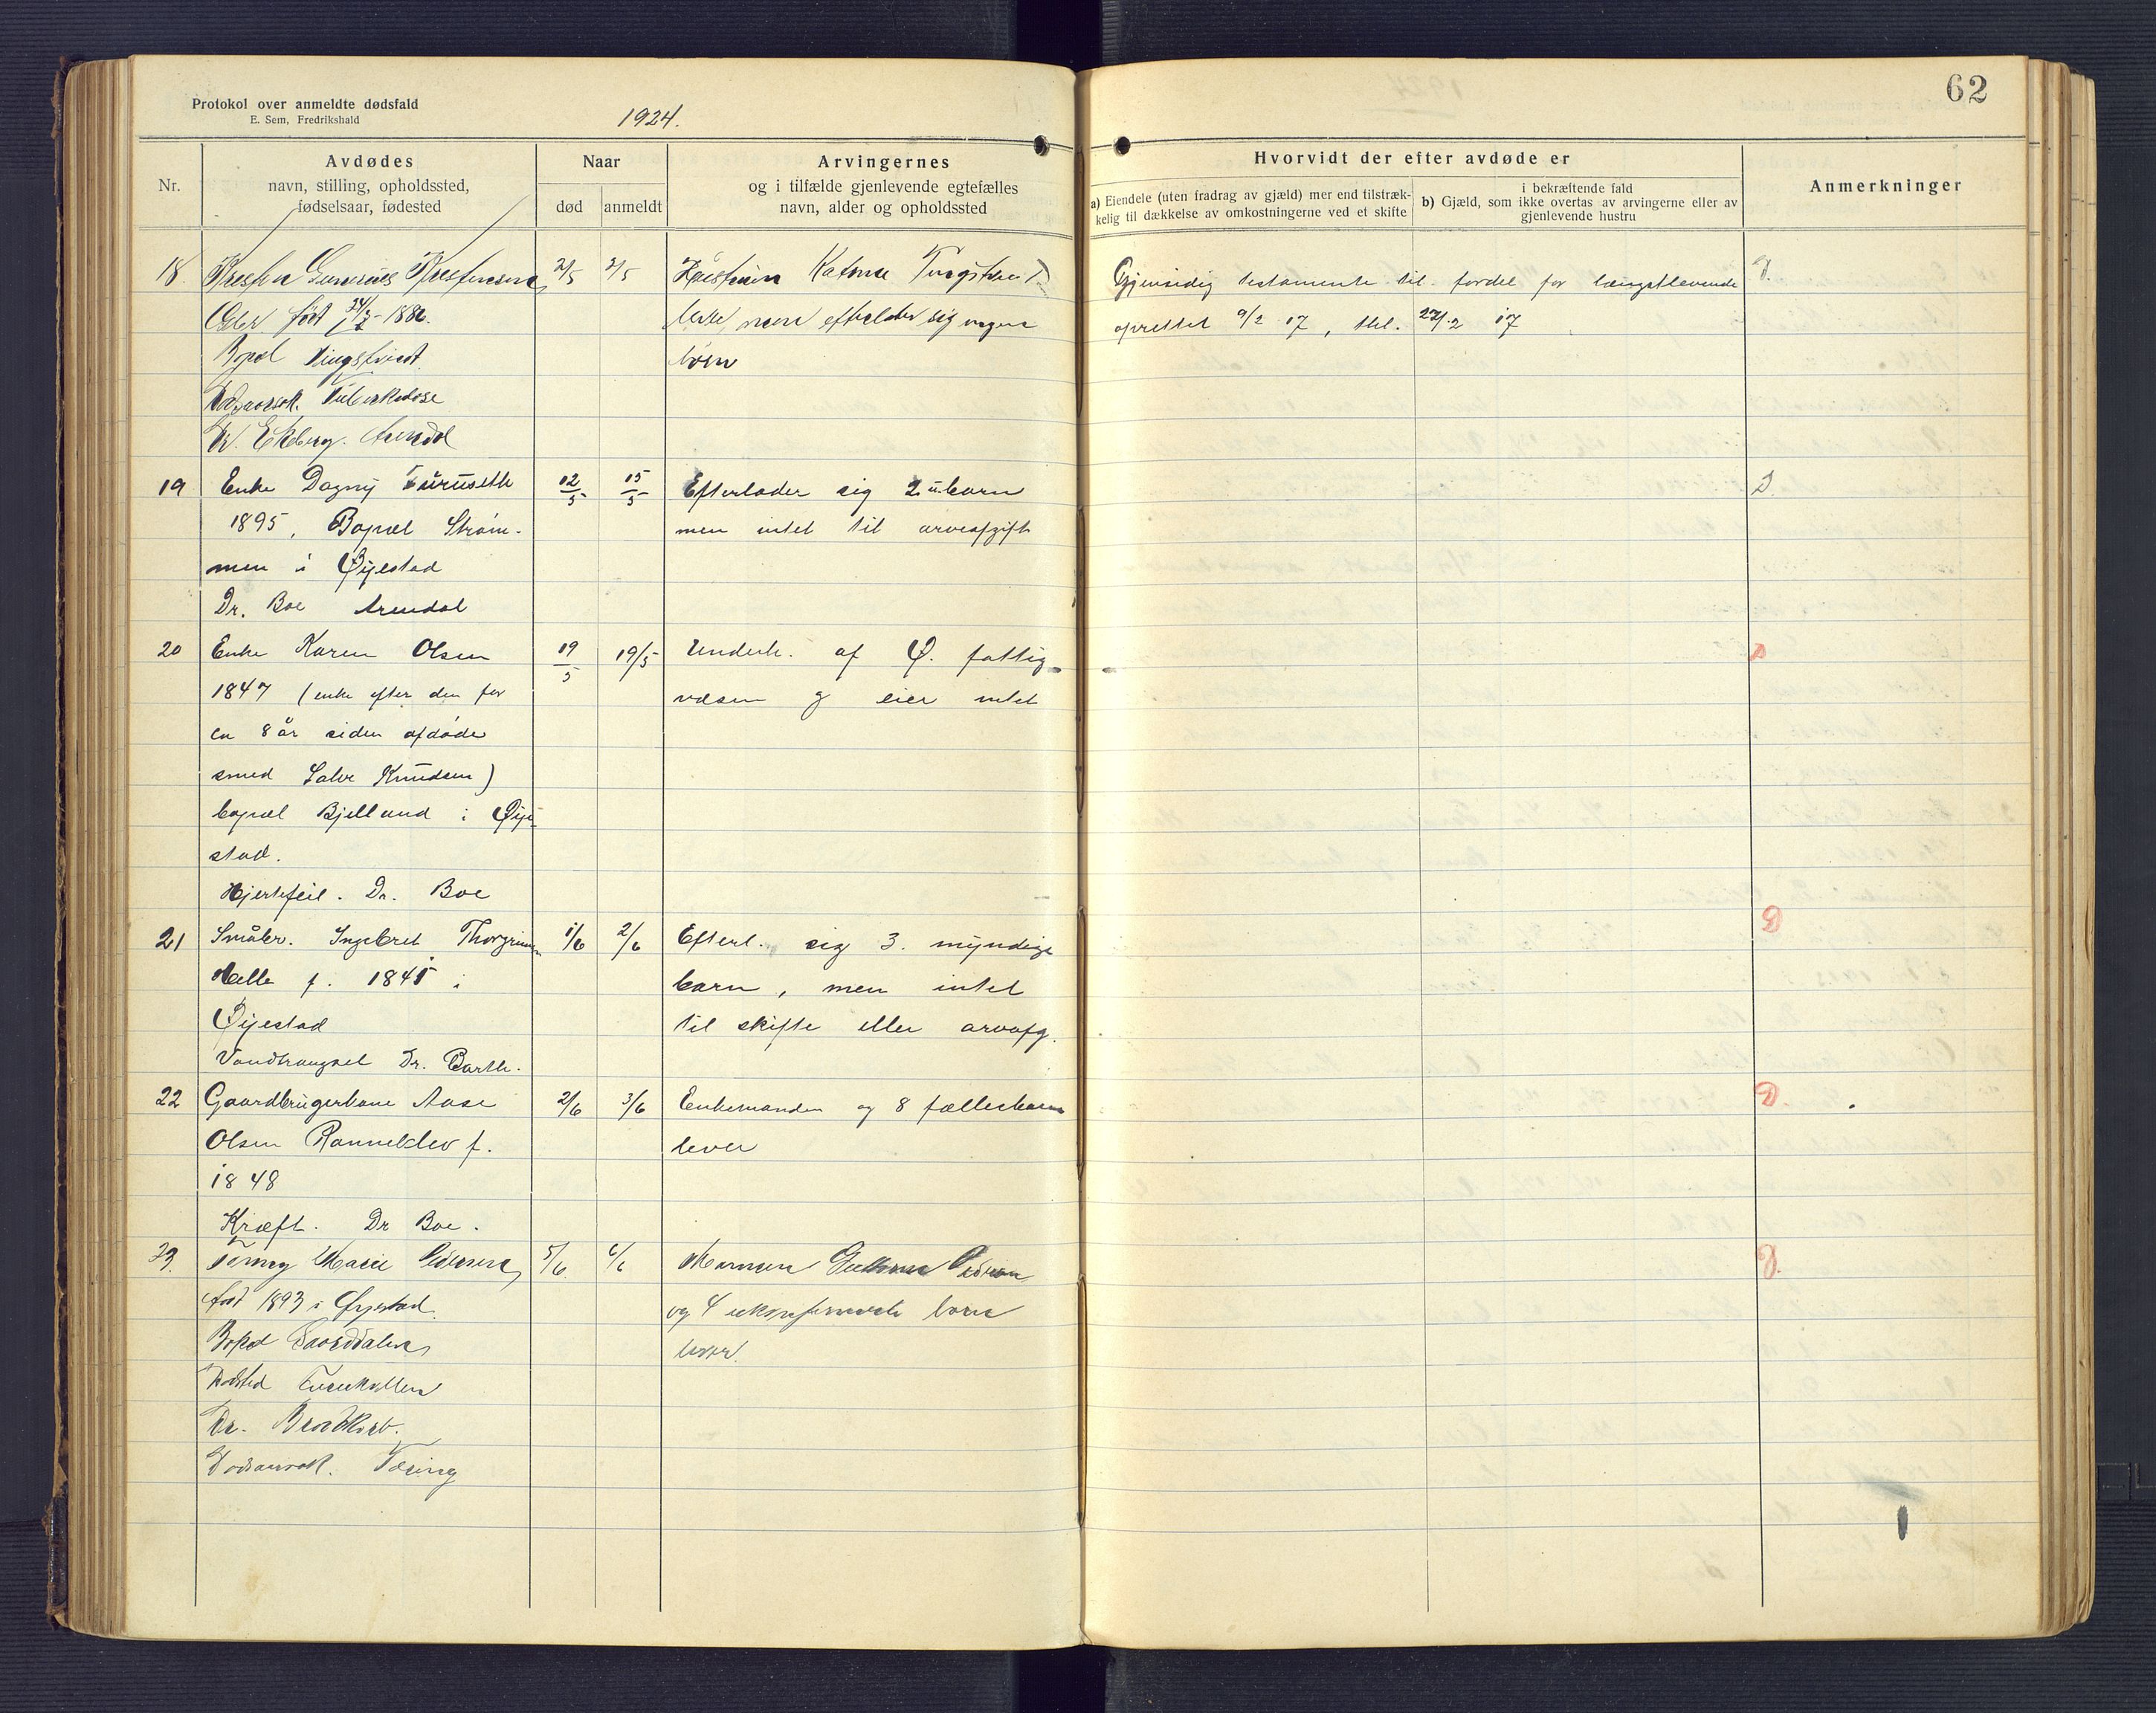 62
Protokol over anmeldte dødsfald
E. Sem, Fredrikshald
1924.
Nr.
Avdødes
navn, stilling, opholdssted,
fødselsaar, fødested
Naar
død
anmeldt
Arvingernes
og i tilfælde gjenlevende egtefælles
navn, alder og opholdssted
Hvorvidt der efter avdøde er
a) Eiendele (uten fradrag av gjæld) mer end tilstræk-
kelig til dækkelse av omkostningerne ved et skifte
i bekræftende fald
b) Gjæld, som ikke overtas av arvingerne eller av
gjenlevende hustru
Anmerkninger
18. 2/5 2/5
født 1886.
Bopæl
Tuberkulose
Dr. Ekeberg. Arendal
Katrine
lever, men efterlader sig ingen
børn
Gjensidig testamente til fordel for længstlevende
oprettet 9/2 17, thl. 22/2 17
19 Enke Dagny Furuseth 12/5 15/5
1895, Bopæl Strøm-
men i Øyestad
Dr. Boe Arendal
Efterlader sig 2 u. barn
men intet til arveafgift
D.
20 Enke Karen Olsen 19/5 19/5
1847 (enke efter den for
ca 8 år siden afdøde
smed Salve Knudsen)
bopæl Bjelland i Øye-
stad.
Hjertefeil. Dr. Boe
Underh. af Ø. fattig-
væsen og eier intet
21 Småbr. Ingebret Thorgrimsen 1/6 2/6
Helle f. 1845 i
Øyestad
Vandtrangsel Dr. Barth.
Efterl. sig 3. myndige
barn, men intet
til skifte eller arvafg.
D
22 Gaardbrugerkone Aase 2/6 3/6
Olsen Ranneklev f.
1848
Kræft. Dr Boe.
Enkemanden og 8 fællesbarn
lever
D.
23. Marie Pedersen, 5/6 6/6
født 1893 i Øyestad
Bopæl
Dødsted
Dr.
Dødsaarsak. Tæring
Manden Pedersen
og 4 ukonfirmerte børn
lever.